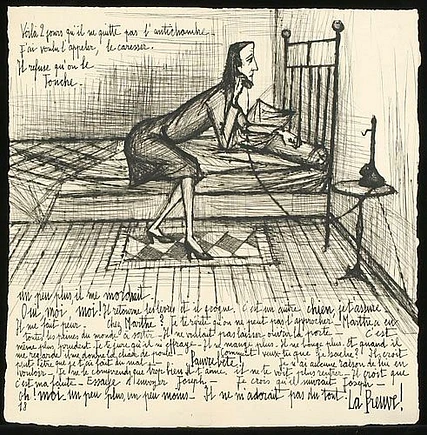 Voilà 2 jours qu'il ne quitte pas l'antichambre.
J'ai voulu l'appeler, le caresser.
Il refuse qu'on le
touche.
un peu plus il me mordait.
Oui, moi, moi! Il retrousse les lèvres et il grogne. C'est un autre chien, je t'assure.
Il me fait peur. chez Marthe? Je te répète qu'on ne peut pas l'approcher. Marthe a eu
toutes les peines du monde à sortir. Il ne voulait pas laisser ouvrir la porte. C'est
même plus prudent. Je te jure qu'il m'effraye. Il ne mange plus. Il ne bouge plus. Et quand il
me regarde il me donne la chair de poule. Comment veux-tu que je sache? Il croit
peut-être que je t'ai fait du mal. Pauvre bête! Je n'ai aucune raison de lui en
vouloir. Je ne le comprends que trop bien. Il t'aime. Il ne te voit plus rentrer. Il croit que
c'est ma faute. Essaye d'envoyer Joseph. Je crois qu'il suivrait Joseph.
Oh! moi un peu plus un peu moins. Il ne m'adorait pas du tout. La preuve!
18